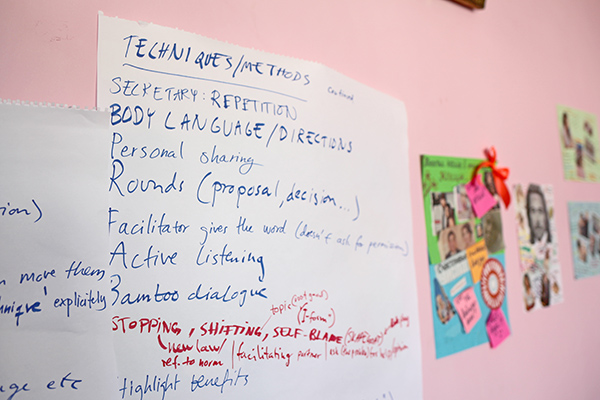 TECHNIQUES/METHODS
continued
SECRETARY: REPETITION
BODY LANGUAGE/DIRECTIONS
Personal sharing
Rounds (proposal, decision...)
Facilitator gives the word (doesn't ask for permission)
Active listening
Bamboo dialogue
topic (not good)
("I-form")
STOPPING, SHIFTING, SELF-BLAME
new law/ | facilitating partner |
ref. to norm
highlight benefits
move them
explicitly
etc